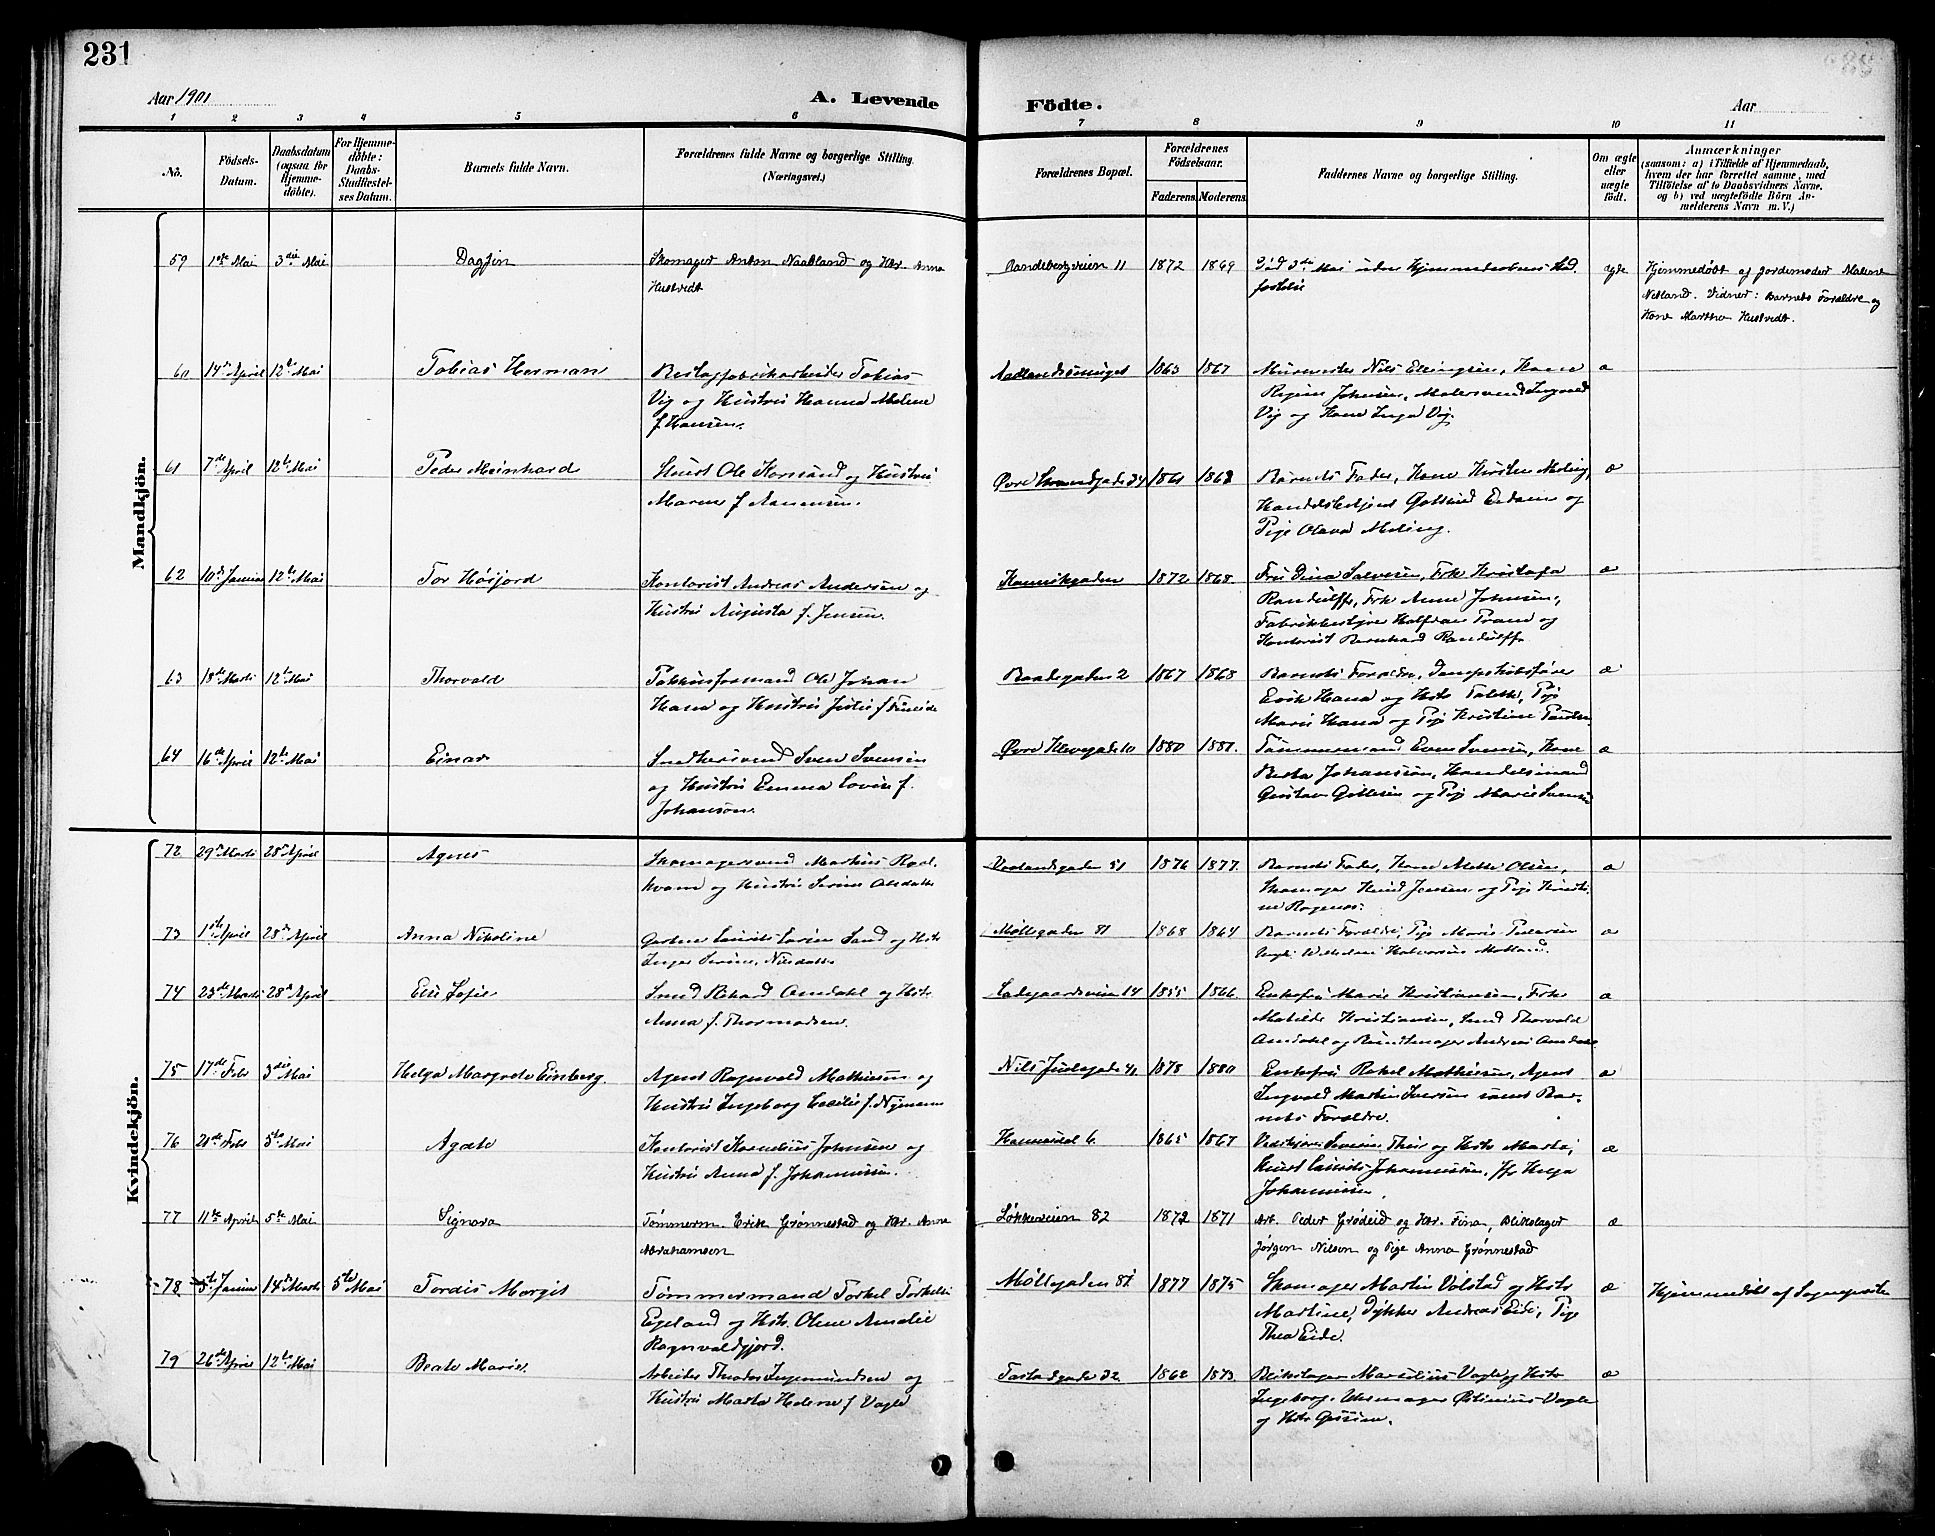 231
Aar 1901
A. Levende
Födte.
Aar
1 2 3 4 5 6 7 8 9 10 11
No.
Födsels-
Datum.
Daabsdatum
(ogsaa for
Hjemme-
döbte).
For Hjemme-
döbte:
Daabs-
Stadfæstel-
ses Datum.
Barnets fulde Navn.
Forældrenes fulde Navne og borgerlige Stilling.
(Næringsvei.)
Forældrenes Bopæl.
Forældrenes
Födselsaar.
Faderens. Moderens.
Faddernes Navne og borgerlige Stilling.
Om ægte
eller
uægte
födt.
Anmærkninger
(saasom: a) i Tilfælde af Hjemmedaab,
hvem der har forrettet samme, med
Tilföielse af to Daabsvidners Navne,
og b) ved uægtefödte Börn An-
melderens Navn m. V.)
Mandkjön.
59 1ste Mai 3die Mai Dagfin Skomager Anton Naadland og Hr. Anna
Hustvedt
Sandebergveien 11 1872 1869 Død 3de Mai uden Hjemmedaabens Stad
fæstelse
ægte Hjemmedøbt af Jordemoder Malene
Netland. Vidner: Barnets Forældre og
Kone Marthe Hustvedt.
60 14de April 12te Mai Tobias Herman Beslagfabrikarbeider Tobias
Vig og Hustru Hanna Malene
f. Hansen.
1863 1867 Murmester Nils Ellingsen, Kone
Regine Johnsen, Malersvend Ingvald
Vig og Kone Inga Vig.
æ
61 7de April 12te Mai Peder Meinhard Stuert Ole Korsand og Hustru
Maren f. Aanensen.
Øvre Strandgade 34 1861 1862 Barnets Fader, Kone Kirsten Meling,
Handelsbetjent Gotlied Eidam og
Pige Olava Meling.
æ
62 10de Januar 12te Mai Tor Høifjord Kontorist Andreas Andersen og
Hustru Augusta f. Jensen.
Kannikgaden 1872 1868 Fru Dina Salvesen, Frk Kristofa
Randulff, Frk Anne Johnsen,
Fabrikbestyrer Halfdan Tram og
Kontorist Bernhard Randulff.
æ
63 18de Marts 12te Mai Thorvald Pakhusformand Ole Johan
Hana og Hustru Julie f.
Baadsgaden 2 1867 1868 Barnets Forældre, Dampskibsfører
Erik Hana og Hstr Talette, Pige
Marie Hana og Pige Kristine
æ
64 16de April 12te Mai Einar Snedkersvend Sven Svensen
og Hustru Emma Lovise f.
Johansøn.
Øvre Klevegade 10 1880 1881. Tømmermand Even Svensen, Kone
Berta Johanssøn, Handelsmand
Gustav Gillesen og Pige Marie Svensen
æ
Kvindekjön.
72 29de Marts 28de April Agnes Skomagersvend Martius Raal
kvam og Hustru Serine Olsdatter
51 1876 1877. Barnets Fader, Kone Mette Olsen,
Skomager Knud Jensen og Pige Kristi
ne Rognes.
æ
73 1ste April 28de April Anna Nikoline Gartner Laurits Larsen Sand og Hstr
Inger Serine, Nilsdatter
Møllegaden 81 1868 1864 Barnets Forældre, Pige Marie Pedersen
Ungk. Wilhelm Halvorsen Molland.
æ
74 23de Marts 28de April Elie Sofie Smed Rikard Omdahl og Hstr
Anna f. Thormodsen.
Ladegaardsveien 14 1855 1866. Enkefru Marie Kristiansen, Frk
Matilde Kristiansen, Smed Thorvald
Omdahl og Bundtmager Andreas Omdahl
æ
75 17de Feb 3die Mai Helga Margrete Einberg. Agent Ragnvald Mathiesen og
Hustru Ingeborg Cecilie f. Nymann
Nils Juelsgade 41 1878 1880 Enkefru Rakel Mathiesen, Agent
Ingvald Martin Iversen samt Bar-
nets Forældre.
æ
76 20de Feb 5te Mai Agate Kontorist Kornelius Johnsen og
Hustru Anna f. Johannessen.
6. 1865 1867 Severin Thu og Hstr Marta,
Stuert Laurits Johannessen, Jfr Helga
Johannessen.
æ
77 11te April 5te Mai Signora Tømmerm. Erik Grønnestad og Hr. Anna
Abrahamsen
Løkkeveien 82 1872 1871 Arb. Peder Grødeid og Hr. Fina, Blikslager
Jørgen Nilsen og Pige Anna Grønnestad
æ
78 5te Januar 14de Marts 5te Mai Tordis Margit Tømmermand Torkel Torkelsen
Egeland og Hstr. Olene Amalie
Ragnvaldsjord.
Møllegaden 81 1877 1875 Skomager Martin Volstad og Hstr
Martine, Dykker Andreas Eide, Pige
Thea Eide.
æ Hjemmedøbt af Sognepresten
79 26de April 12te Mai Beate Marie. Arbeider Theodor Ingemundsen og
Hustru Marta Helene f. Vagle
Tastadgade 32 1862 1873. Blikslager Marselius Vagle og Hstr
Ingeborg, Uhrmager Østinius Vagle
og Hstr Gessine.
æ